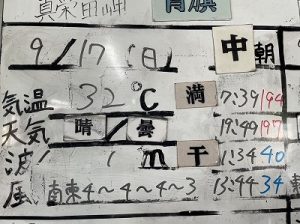 真栄田岬 青旗
9/17(日) 中 朝
気温 32℃ 満 17:39 194
天気 晴/曇 19:49 197
波 1 m 干 1:34 40
風 南東4～4～4～3 13:44 34